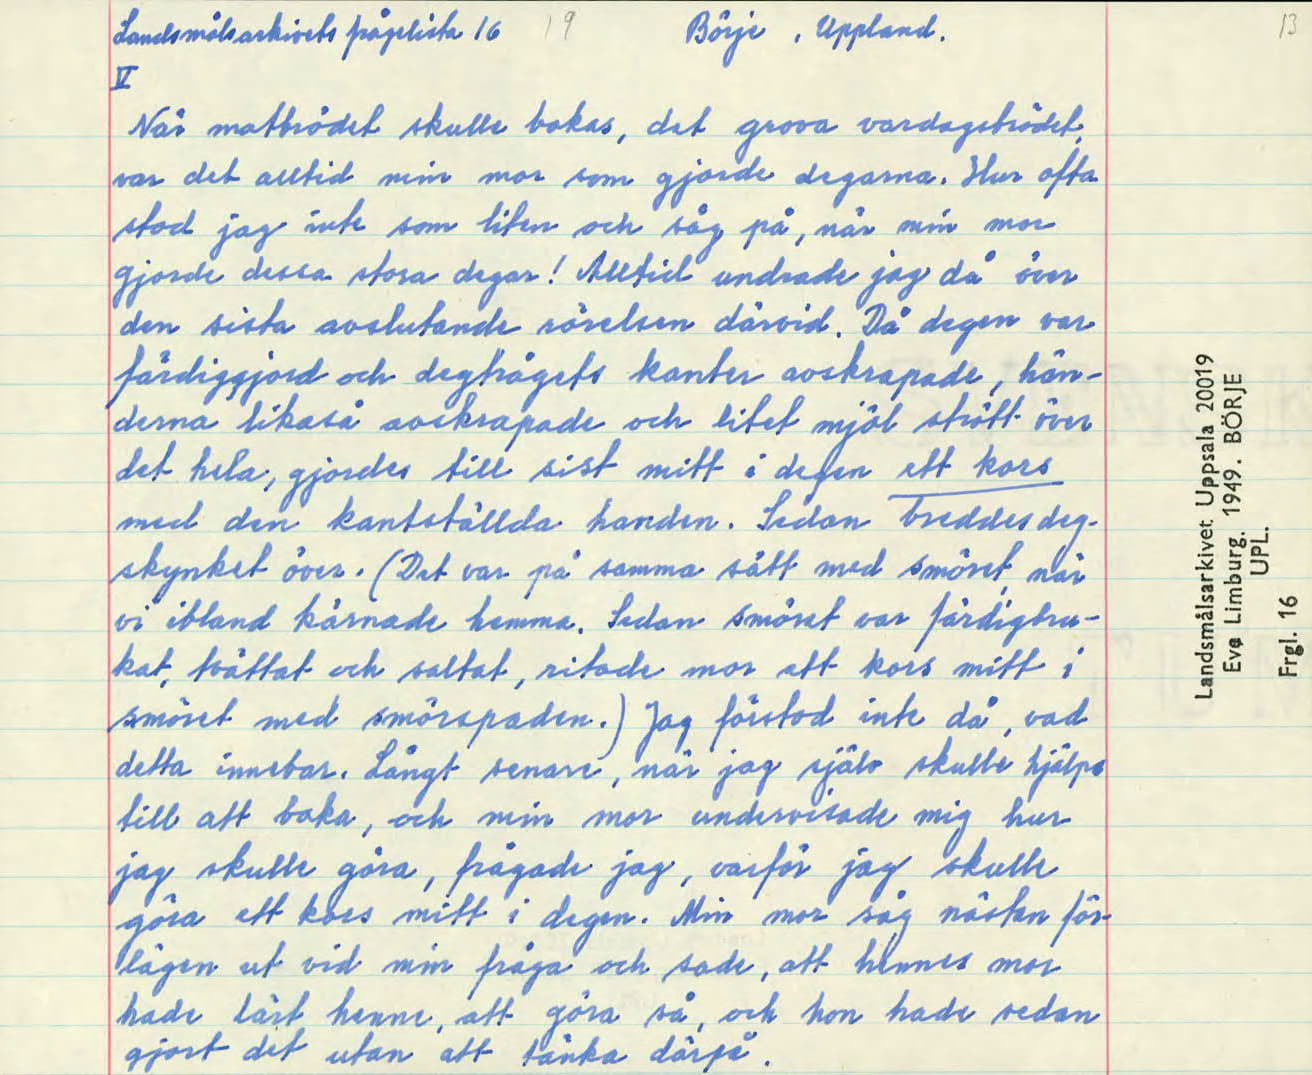 Landsmålsarkivets frågelista 16 19 Börje, Uppland. 13
V
När matbrödet skulle bakas, det grova vardagsbrödet,
var det alltid min mor som gjorde degarna. Hur ofta
stod jag inte som liten och såg på, när min mor
gjorde dessa stora degar! Alltid undrade jag då över
den sista avslutande rörelsen därvid. Då degen var
färdiggjord och degtrågets kanter avskrapade, hän-
derna likaså avskrapade och litet mjöl strött över
det hela, gjordes till sist mitt i degen ett kors
med den kantställda handen. Sedan breddes deg-
skynket över. (Det var på samma sätt med smöret, när
vi ibland kärnade hemma. Sedan smöret var färdigbru-
kat, tvättat och saltat, ritade mor ett kors mitt i
smöret med smörspaden.) Jag förstod inte då, vad
detta innebar. Långt senare, när jag själv skulle hjälpa
till att baka, och min mor undervisade mig hur
jag skulle göra, frågade jag, varför jag skulle
göra ett kors mitt i degen. Min mor såg nästan för-
lägen ut vid min fråga och sade, att hennes mor
hade lärt henne, att göra så, och hon hade sedan
gjort det utan att tänka därpå.
Landsmålsarkivet Uppsala 20019
Eva Limburg. 1949. BÖRJE
UPL.
Frgl. 16